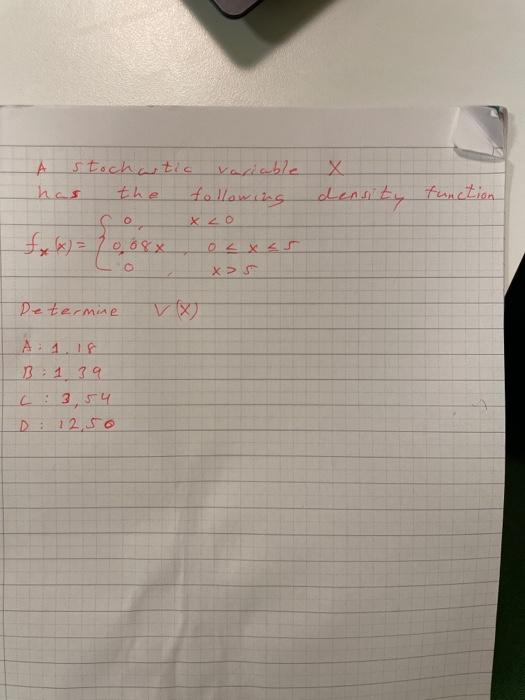 A stochastic variable X
has the following density function
0, x < 0
fx(x) = { 0,08x, 0 ≤ x ≤ 5
0, x > 5
Determine V(X)
A: 1.18
B: 1,39
C: 3,54
D: 12,50